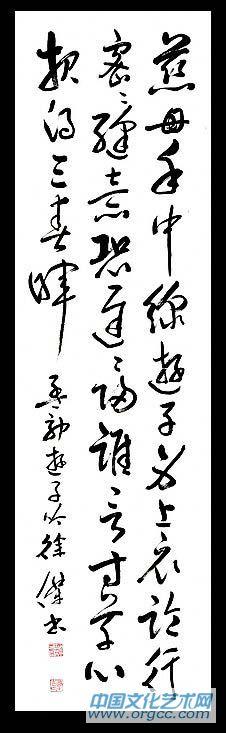 慈母手中線遊子身上衣臨行
密〻縫意恐遲〻歸誰言寸草心
報得三春暉
孟郊遊子吟徐傑书
中国文化艺术网
www.orgcc.com